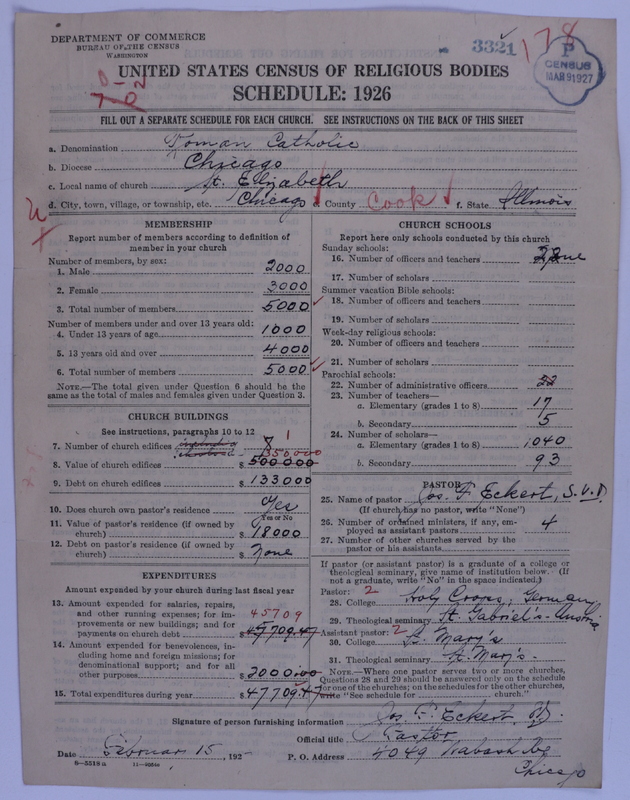 DEPARTMENT OF COMMERCE
BUREAU OF THE CENSUS
WASHINGTON
3321
178
P
CENSUS
MAR 9 1927
UNITED STATES CENSUS OF RELIGIOUS BODIES
SCHEDULE: 1926
FILL OUT A SEPARATE SCHEDULE FOR EACH CHURCH. SEE INSTRUCTIONS ON THE BACK OF THIS SHEET
a. Denomination Roman Catholic
b. Diocese Chicago
c. Local name of church St. Elizabeth
d. City, town, village, or township, etc. Chicago e. County Cook f. State Illinois
MEMBERSHIP
Report number of members according to definition of member in your church
Number of members, by sex:
1. Male 2000
2. Female 3000
3. Total number of members 5000
Number of members under and over 13 years old:
4. Under 13 years of age 1000
5. 13 years old and over 4000
6. Total number of members 5000
NOTE.—The total given under Question 6 should be the
same as the total of males and females given under Question 3.
CHURCH BUILDINGS
See instructions, paragraphs 10 to 12
7. Number of church edifices 1
350000
8. Value of church edifices $ 500000
9. Debt on church edifices $ 133000
10. Does church own pastor's residence? Yes
Yes or No
11. Value of pastor's residence (if owned by
church) $ 18000
12. Debt on pastor's residence (if owned by
church) $ None
EXPENDITURES
Amount expended by your church during last fiscal year
13. Amount expended for salaries, repairs,
and other running expenses; for im-
provements or new buildings; and for
payments on church debt 45709
$ 45709.47
14. Amount expended for benevolences, in-
cluding home and foreign missions; for
denominational support; and for all
other purposes $ 2000.00
15. Total expenditures during year $ 47709.47
CHURCH SCHOOLS
Report here only schools conducted by this church
Sunday schools:
16. Number of officers and teachers
17. Number of scholars
Summer vacation Bible schools:
18. Number of officers and teachers
19. Number of scholars
Week-day religious schools:
20. Number of officers and teachers
21. Number of scholars
Parochial schools:
22. Number of administrative officers 22
23. Number of teachers—
a. Elementary (grades 1 to 8) 17
b. Secondary 5
24. Number of scholars—
a. Elementary (grades 1 to 8) 1040
b. Secondary 93
PASTOR
25. Name of pastor Jos. F. Eckert, S.V.D.
(If church has no pastor, write "None")
26. Number of ordained ministers, if any, em-
ployed as assistant pastors 4
27. Number of other churches served by the
pastor or his assistants
If pastor (or assistant pastor) is a graduate of a college or
theological seminary, give name of institution below. (If
not a graduate, write "No" in the space indicated.)
Pastor: 2
28. College Holy Cross, Germany
29. Theological seminary St. Gabriel's - Austria
Assistant pastor: 2
30. College St. Mary's
31. Theological seminary St. Mary's
NOTE.—Where one pastor serves two or more churches,
Questions 28 and 29 should be answered only on the schedule
for one of the churches; on the schedules for the other churches,
write "See schedule for church."
Signature of person furnishing information Jos. F. Eckert
Official title Pastor
Date Februar 15, 192- P. O. Address 4049 Wabash Av
Chicago
8-5518a 11-9954a